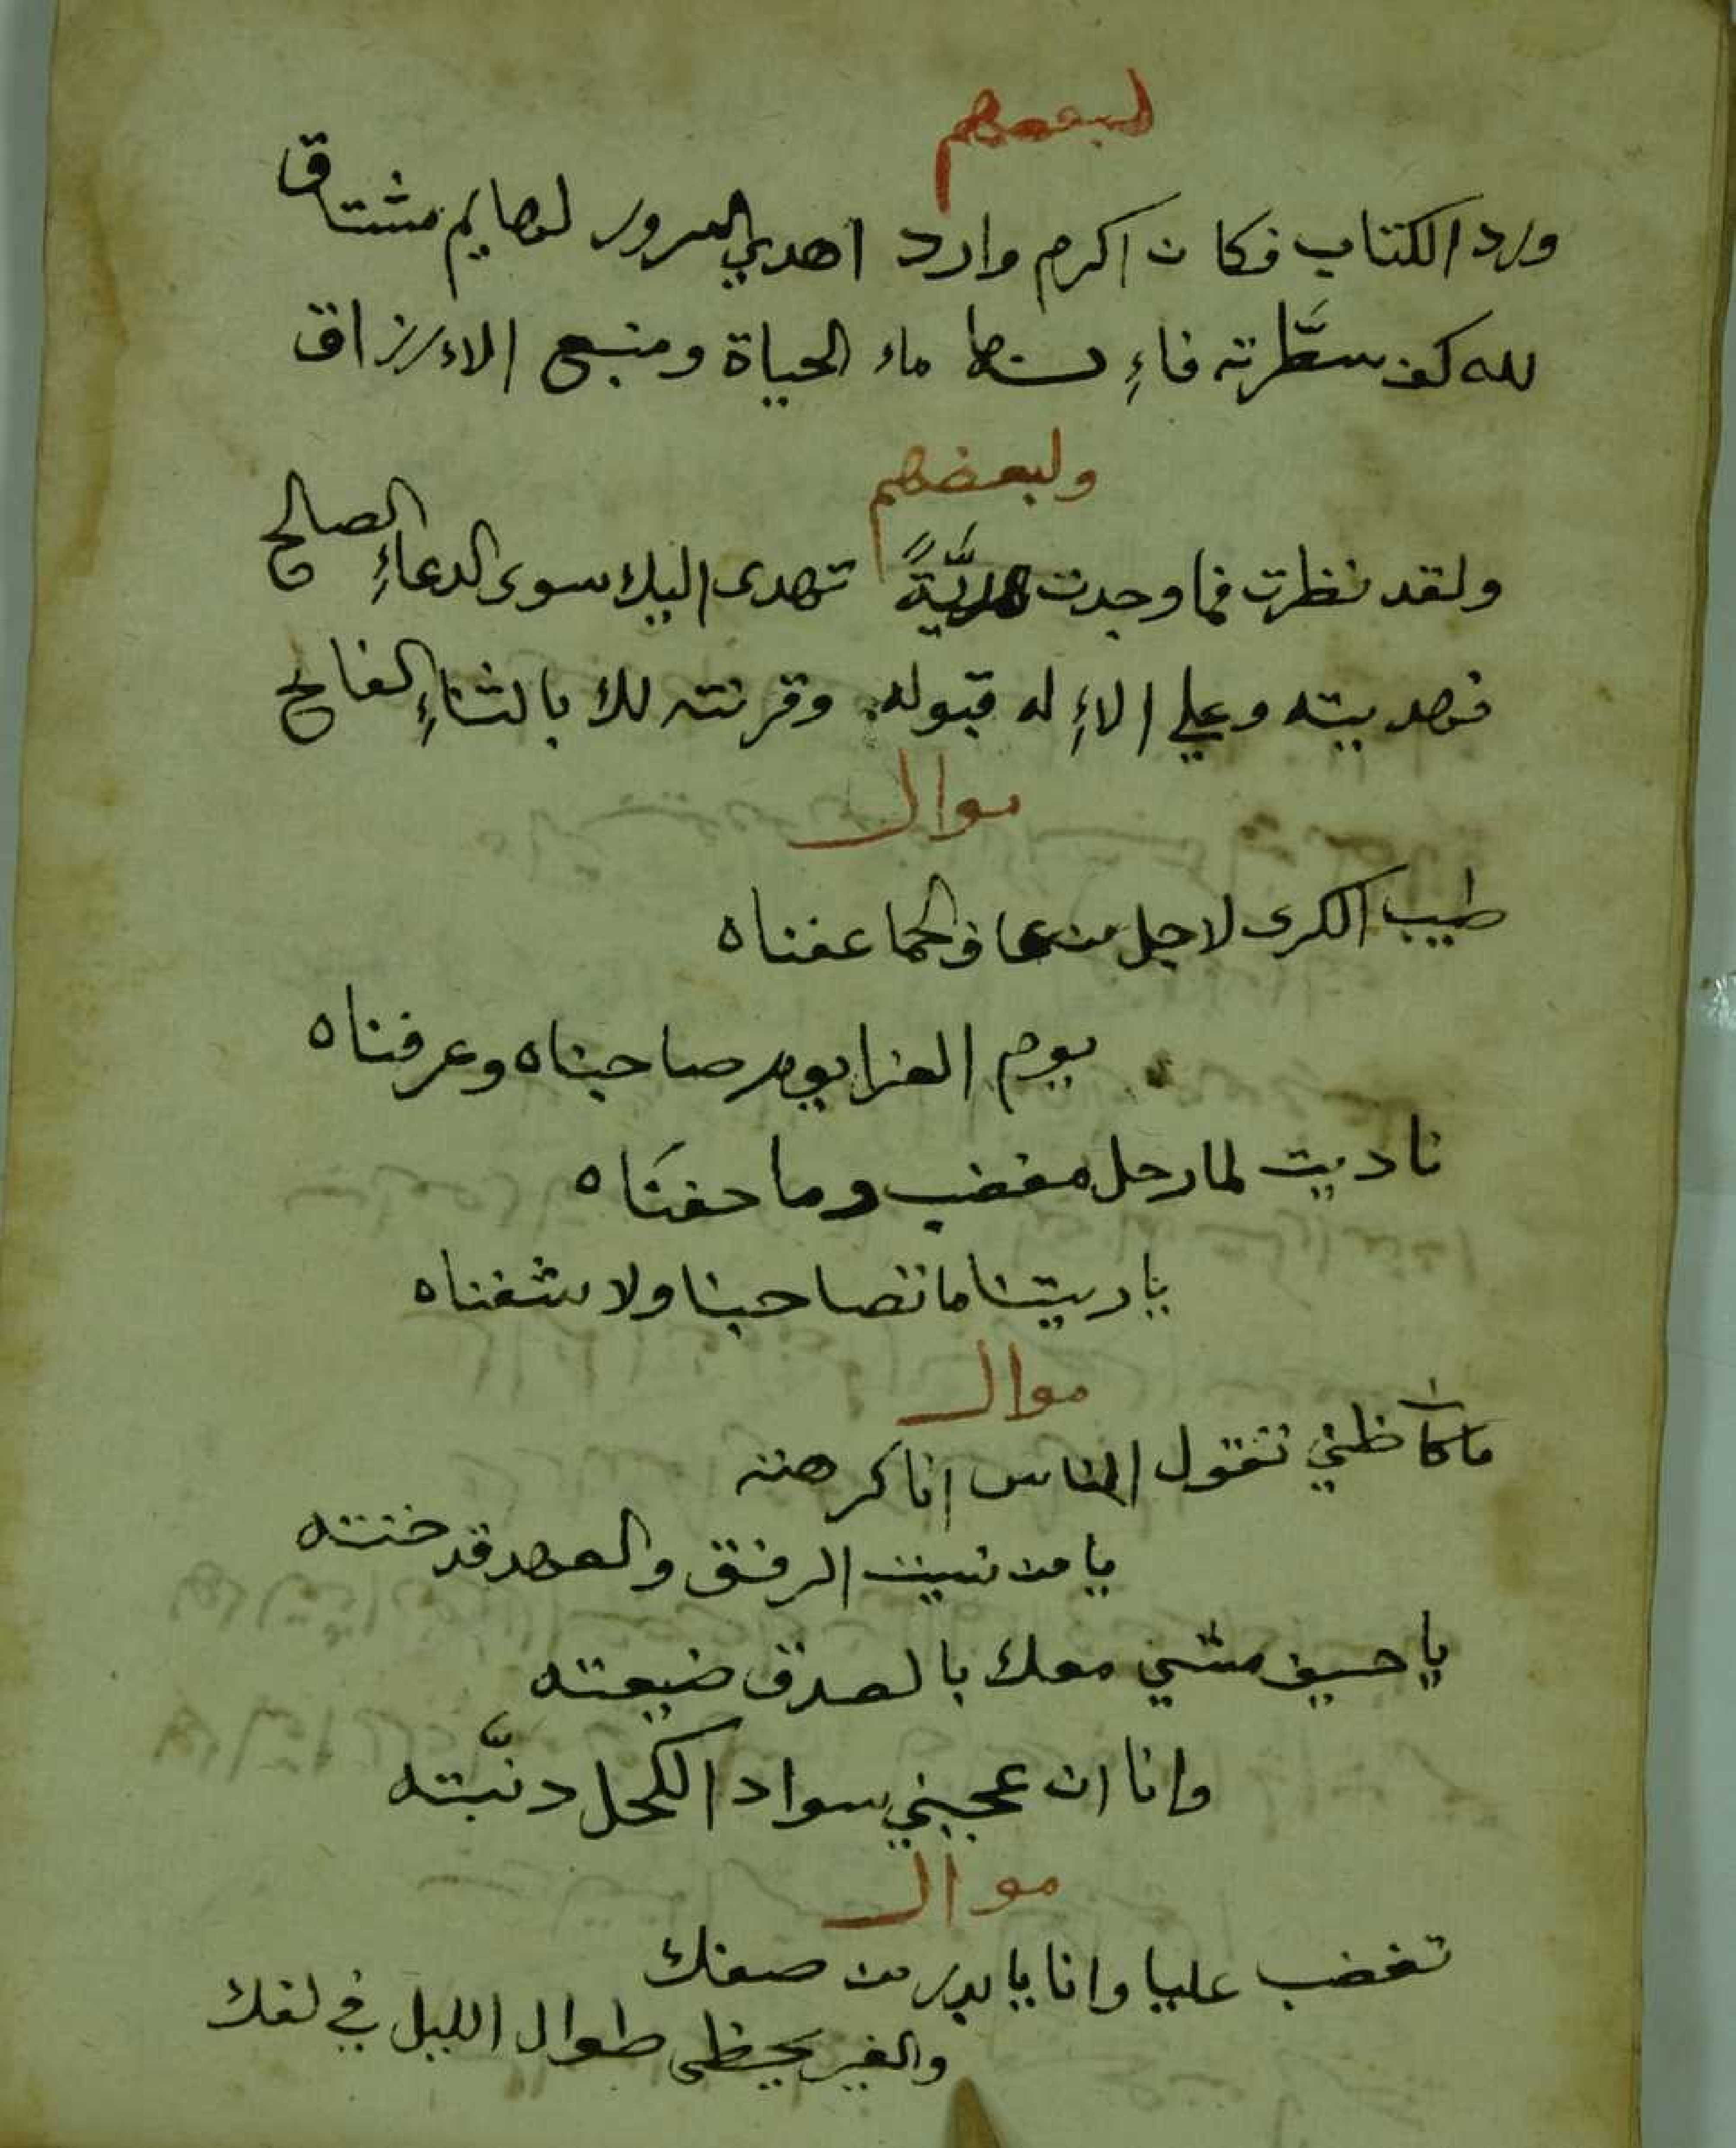 لبعضهم
ورد الكتاب فكان اكرم وارد اهدي السرور لهايم مشتاق
لله كف سطّرته فاءِ نها ماء الحياة ومنبع الاءرزاق
ولبعضهم
ولقد نظرت فما وجدت هديَّةً تهدى اليك سوى الدعاءِ الصالح
فهديته وعلي الاءِله قبوله وقرنته لك بالثناءِ الفالح
موال
طيب الكرى لاجل من في الحما عفناه
يوم العزا يوم صاحبناه وعرفناه
ناديت لما رحل مغضب وما حفنَاه
ياريتنا ماتصاحبنا ولا شفناه
موال
ماكان ظني تقول الناس اناكرهته
يا من نسيت الرفق والعهد قد خنته
يا حسيف مشيي معك بالصدق ضيعته
وانا ان عجبني سواد الكحل دنّبته
موال
تغضب عليا وانا يا بدر من صفك
والغير يحظى طوال الليل في لفك